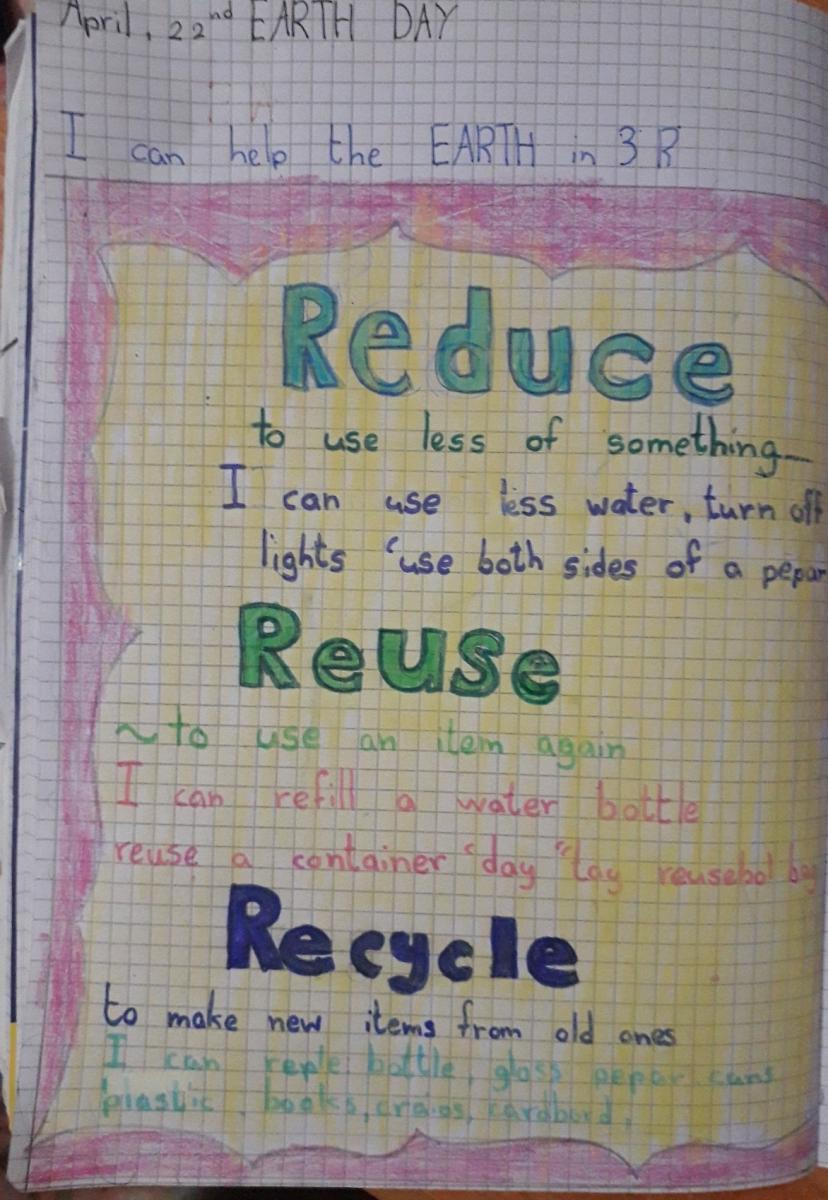 April, 22nd EARTH DAY
I can help the EARTH in 3 R
Reduce
to use less of something—
I can use less water, turn off
lights 'use both sides of a pepar
Reuse
~to use an item again
I can refill a water bottle
reuse a container "day "tay reusebol bag
Recycle
to make new items from old ones
I can bottle, gloss pepar cans
plastic, books, cardburd,